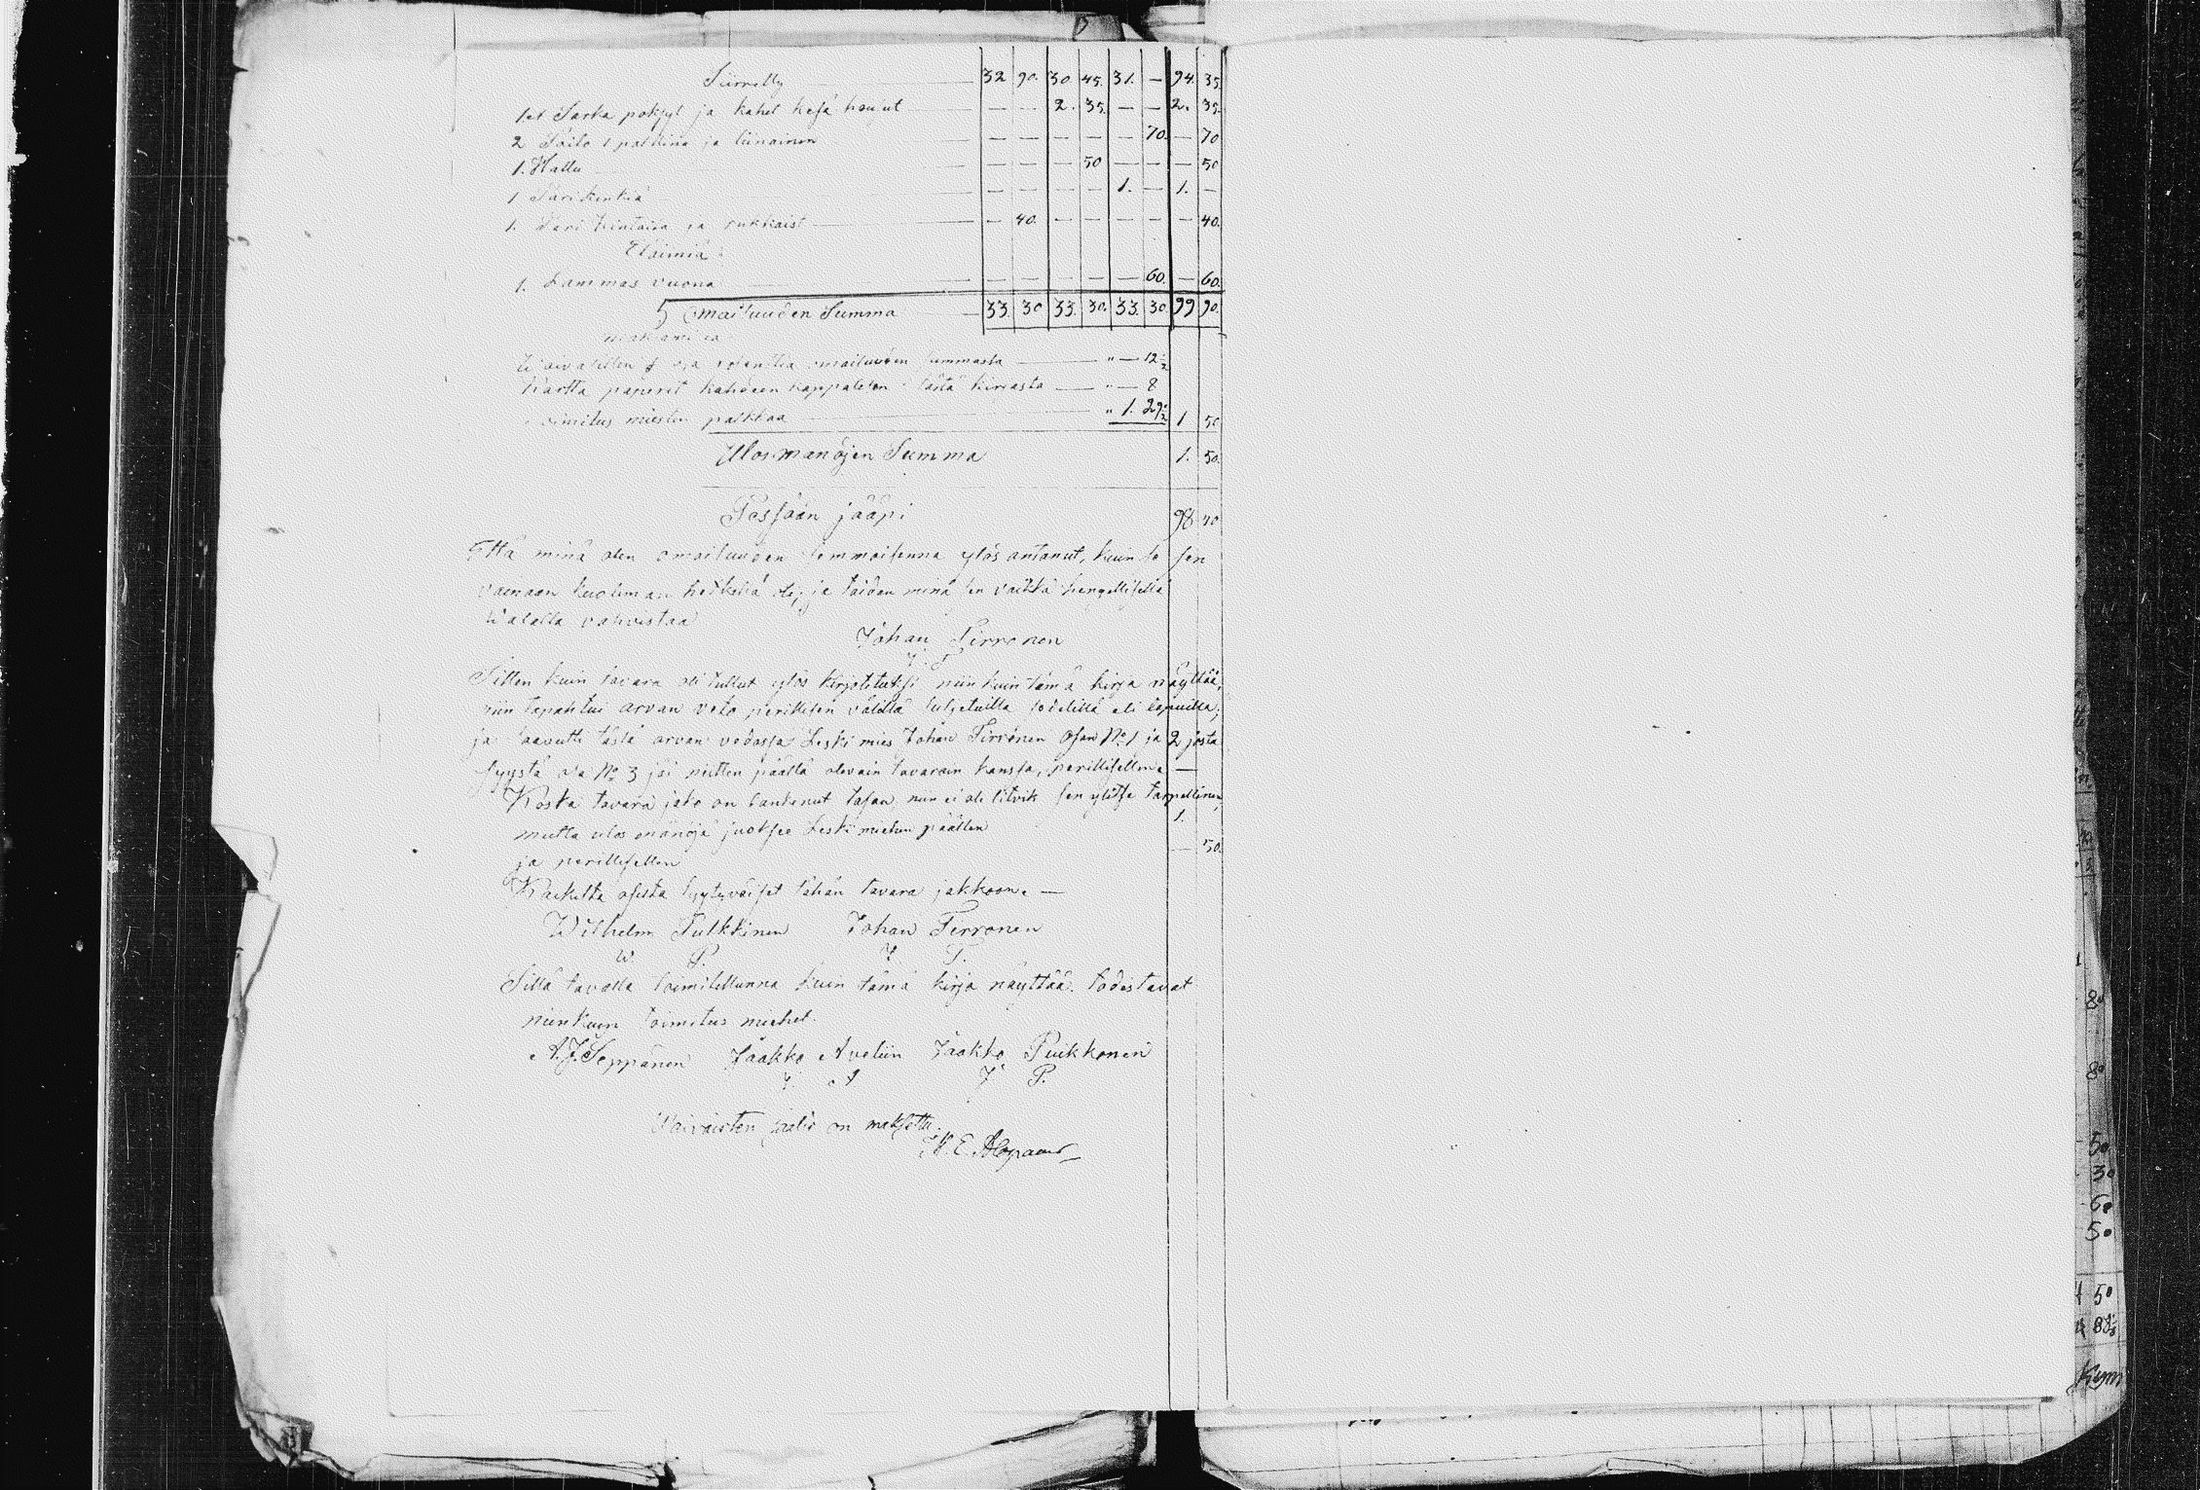 Siirretty 32 90. 30. 45. 31. — 94. 35.
1et Sarka pöksyt ja kahet kesä housut — — 2. 35. — — 2. 35.
2 Paito 1 palttina ja liinainen — — — — — 70. — 70
1. Hattu — — — 50 — — — 50
1 Pari kenkiä — — — — 1. — 1. —
1. Pari kintaita ja sukkaist — 40. — — — — — 40.
Eläimiä:
1. Lammas vuona — — — — — 60. — 60.
Omaisuuden Summa 33. 30 33. 30. 33. 30. 99 90.
Waivasillen osa rosenttia omaisuuden summasta " — 12½
Kartta paperit kahdeen kappaleesen tästä kirjasta " — 8
Toimitus miesten palkkaa " 1. 29½ 1 50
Ulosmanöjen Summa 1. 50.
Pässään jääpi 98 40
Että minä olen omaisuuden semmoisenna ylös antanut, kuin se sen
vainaan kuoleman hetkellä oli, ja taidan minä sen vaikka hengellisellä
Walalla vahvistaa
Johan Tirronen
J. T.
Sitten kuin tavara oli tullut ylös kirjotetuksi niin kuin tämä kirja näyttää,
niin tapahtui arvan veto perillisen välillä suljetuilla sedelillä eli lapuilla;
ja saavutti tästä arvan vedossa Leski mies Johan Tirronen Osan No 1 ja 2 josta
syystä osa No 3 jäi niitten päällä olevain tavarain kanssa, perillisellen. —
Koska tavara jako on lankenut tasan, niin ei ole litvik sen ylitse tarpellinen,
mutta ulos mänöjä juoksee Leski miehen päällen 1.
ja perillisellen — 50.
Kaikilta osilta tyytyväiset tähän tavara jakkoon. —
Wilhelm Pulkkinen Johan Tirronen
W. P. J. T.
Sillä tavalla toimitettunna kuin tämä kirja näyttää. todistavat
niinkuin toimitus miehet.
A. J. Seppänen Jaakko Aveliin Jaakko Puikkonen
J. A J. P.
Waivaisten saalis on maksettu.